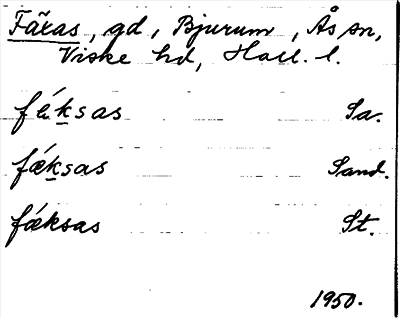 Färas, gd, Bjurum, Ås sn,
Viske hd, Hall. l.
fǽksas Sa.
fǽksas Sand.
fǽksas St.
1950.